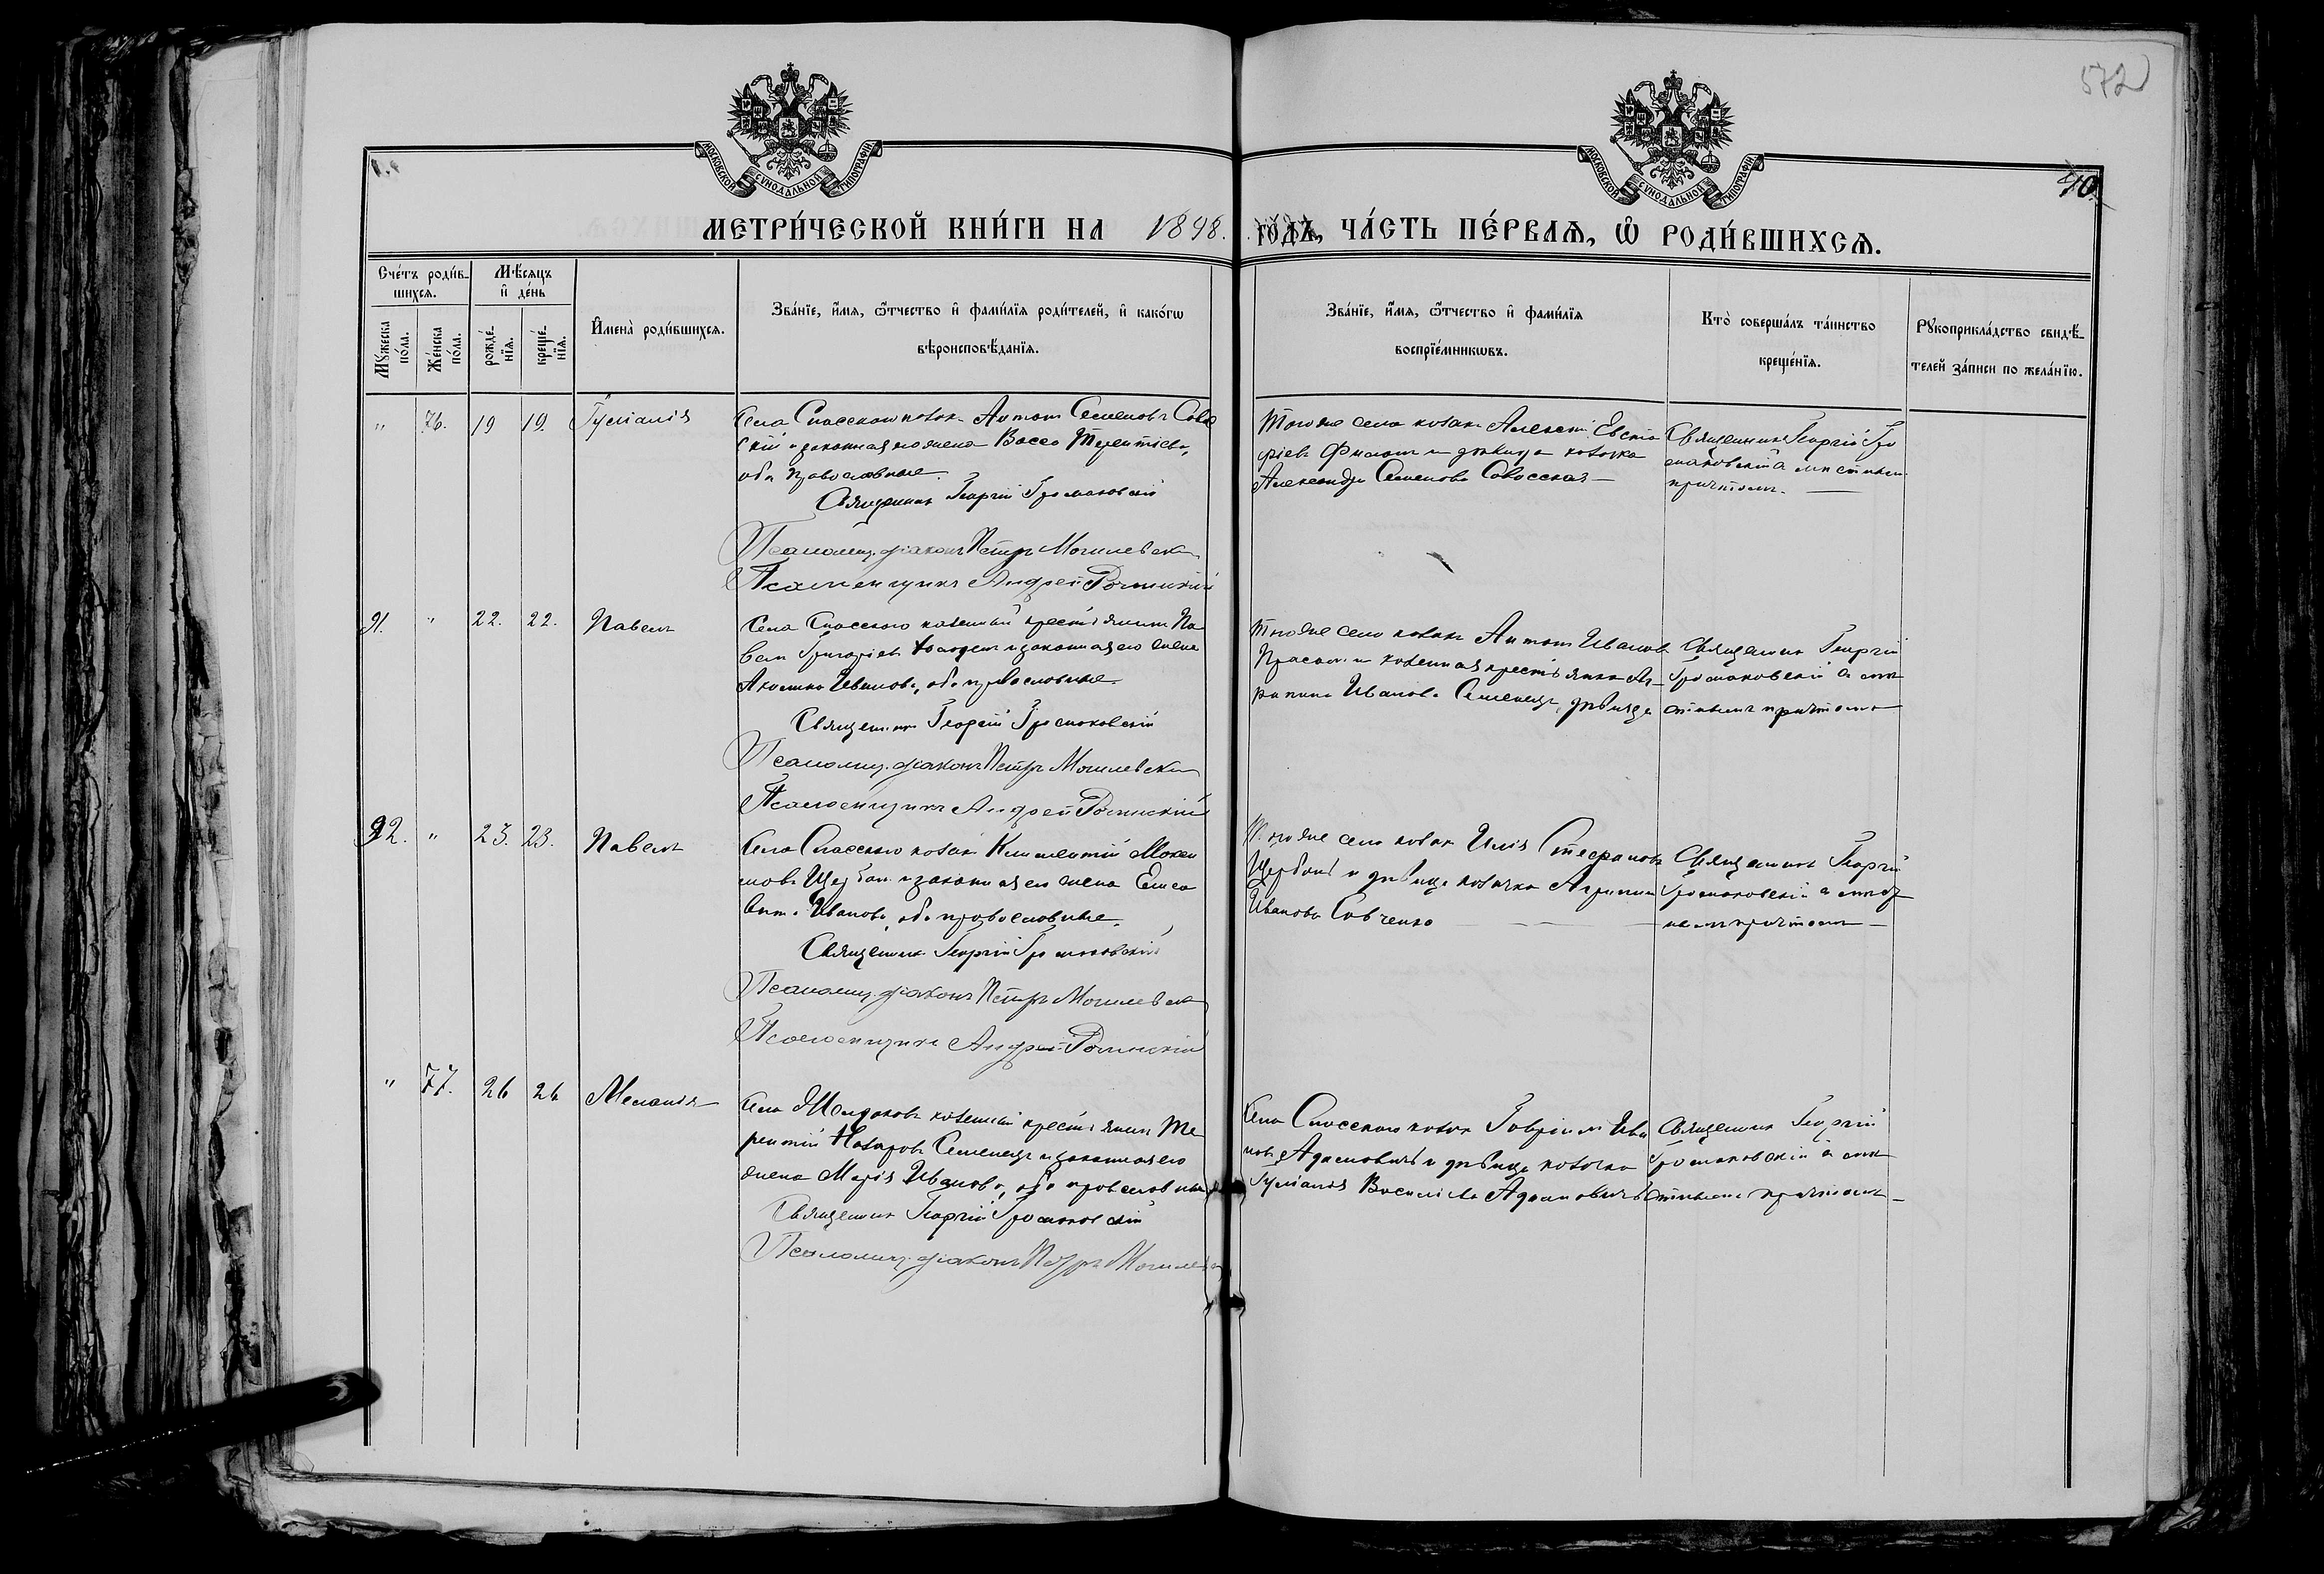 572
40.
МОСКОВСКОЙ СѴНОДАЛЬНОЙ ТИПОГРАФІИ
МОСКОВСКОЙ СѴНОДАЛЬНОЙ ТИПОГРАФІИ
МЕТРИ́ЧЕСКОЙ КНИ́ГИ НА 1898. ГО́ДЪ, ЧА́СТЬ ПЕ́РВАѦ, Ѽ РОДИ́ВШИХСѦ.
Сче́тъ роди́в-
шихсѧ.
Мѣ́сѧцъ
и҆ де́нь
Мꙋ́жеска по́ла.
Же́нска по́ла.
рожде́-нїѧ.
креще́-нїѧ.
И҆мена̀ роди́вшихсѧ.
Зва́нїе, и҆́мѧ, ѻ҆́тчество и҆ фами́лїѧ роди́телей, и҆ како́гѡ
вѣроисповѣ́данїѧ.
Зва́нїе, и҆́мѧ, ѻ҆́тчество и҆ фами́лїѧ
воспрїе́мникѡвъ.
Кто̀ соверша́лъ та́инство
креще́нїѧ.
Рꙋкоприкла́дство свидѣ́-
телей за́писи по жела́нїю.
" 76. 19 19. Іуліанія
Села Спасского козакъ Антонъ Семеновъ Савос
скій и законная его жена Васса Терентіева,
оба православные.
Священникъ Георгій Громаковскій
Псаломщ. діаконъ Петръ Могилевскій
Псаломщикъ Андрей
Того же села козакъ Алексѣй Евста
фіевъ и дѣвица козачка
Александра Семенова Савосская —
Священникъ Георгій Гро
маковскій съ мѣстнымъ
причтомъ. —
91. " 22. 22. Павелъ
Села Спасского казенный крестьянинъ Па
велъ Григорьевъ и законная его жена
Акилина Иванова, оба православные.
Священникъ Георгій Громаковскій
Псаломщ. діаконъ Петръ Могилевскій
Псаломщикъ Андрей
Того же села козакъ Антонъ Ивановъ
и казенная крестьянка Аг-
рипина Иванова Семенецъ, дѣвица
Священникъ Георгій
Громаковскій съ мѣ
стнымъ причтомъ
92. " 23. 23. Павелъ
Села Спасского козакъ Климентій Макси
мовъ Щербань и законная его жена Елиса
вета Иванова, оба православные.
Священникъ Георгій Громаковскій
Псаломщ. діаконъ Петръ Могилевскій
Псаломщикъ Андрей
Того же села козакъ Илія Стефановъ
Щербань и дѣвица козачка Агрипина
Иванова Савченко —
Священникъ Георгій
Громаковскій съ мѣст
нымъ причтомъ —
" 77. 26 26 Меланія
Села казенный крестьянинъ Те
рентій Назаровъ Семенецъ и законная его
жена Марія Иванова, оба православные
Священникъ Георгій Громаковскій
Псаломщ. діаконъ Петръ Могилев
Села Спасского козакъ Гавріилъ Ива
новъ Адамовичъ и дѣвица козачка
Іуліанія Василіева Адамовичъ
Священникъ Георгій
Громаковскій съ мѣ
стнымъ причтомъ —